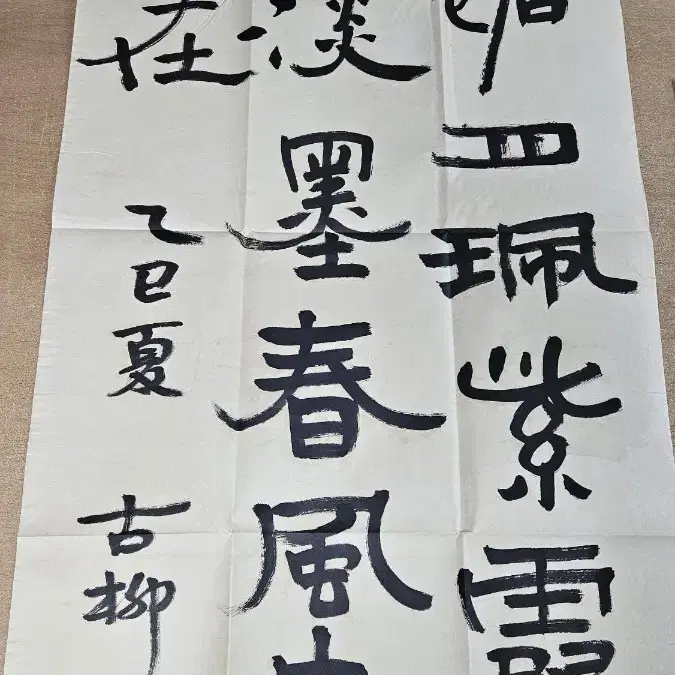 珮紫
淡墨春風
在
乙巳夏
古柳